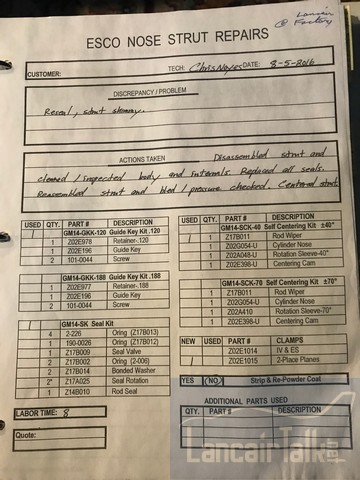 Lancair
@ Factory
ESCO NOSE STRUT REPAIRS
CUSTOMER: TECH: Chris Noyes DATE: 8-5-2016
DISCREPANCY / PROBLEM
Reseal, strut shimmy.
ACTIONS TAKEN Disassembled strut and
cleaned / inspected body and internals. Replaced all seals.
Reassembled strut and bled / pressure checked. Centered strut.
USED QTY. PART # DESCRIPTION
GM14-GKK-120 Guide Key Kit .120
1 Z02E978 Retainer-.120
1 Z02E196 Guide Key
2 101-0044 Screw
GM14-GKK-188 Guide Key Kit .188
1 Z02E977 Retainer-.188
1 Z02E196 Guide Key
2 101-0044 Screw
GM14-SK Seal Kit
4 2-226 Oring (Z17B013)
1 190-0026 Oring (Z17B012)
1 Z17B009 Seal Valve
1 Z17B002 Oring (2-006)
2 Z17B014 Bonded Washer
2* Z17A025 Seal Rotation
1 Z14B010 Rod Seal
LABOR TIME: 8
Quote:
USED QTY. PART # DESCRIPTION
GM14-SCK-40 Self Centering Kit ±40°
1 Z17B011 Rod Wiper
1 Z02G054-U Cylinder Nose
1 Z02A048-U Rotation Sleeve-40°
1 Z02E398-U Centering Cam
GM14-SCK-70 Self Centering Kit ±70°
1 Z17B011 Rod Wiper
1 Z02G054-U Cylinder Nose
1 Z02A410 Rotation Sleeve-70°
1 Z02E398-U Centering Cam
NEW USED PART # CLAMPS
Z02E1014 IV & ES
Z02E1015 2-Place Planes
YES NO Strip & Re-Powder Coat
ADDITIONAL PARTS USED
QTY. PART # DESCRIPTION
LancairTalk